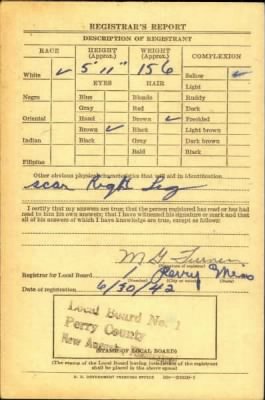 REGISTRAR'S REPORT
DESCRIPTION OF REGISTRANT
RACE HEIGHT (Approx.) WEIGHT (Approx.) COMPLEXION
White ✓ 5' 11" 156 Sallow ✓
EYES HAIR Light
Negro Blue Blonde Ruddy
Gray Red Dark
Oriental Hazel Brown ✓ Freckled
Brown ✓ Black Light brown
Indian Black Gray Dark brown
Bald Black
Filipino
Other obvious physical characteristics that will aid in identification
scar Right Leg
I certify that my answers are true; that the person registered has read or has had read to him his own answers; that I have witnessed his signature or mark and that all of his answers of which I have knowledge are true, except as follows:
M G Turner
(Signature of registrar)
Registrar for Local Board 1 Perry Miss
(Number) (City or county) (State)
Date of registration 6/30/42
Local Board No. 1
Perry County
New Augusta
(STAMP OF LOCAL BOARD)
(The stamp of the Local Board having jurisdiction of the registrant shall be placed in the above space)
U. S. GOVERNMENT PRINTING OFFICE